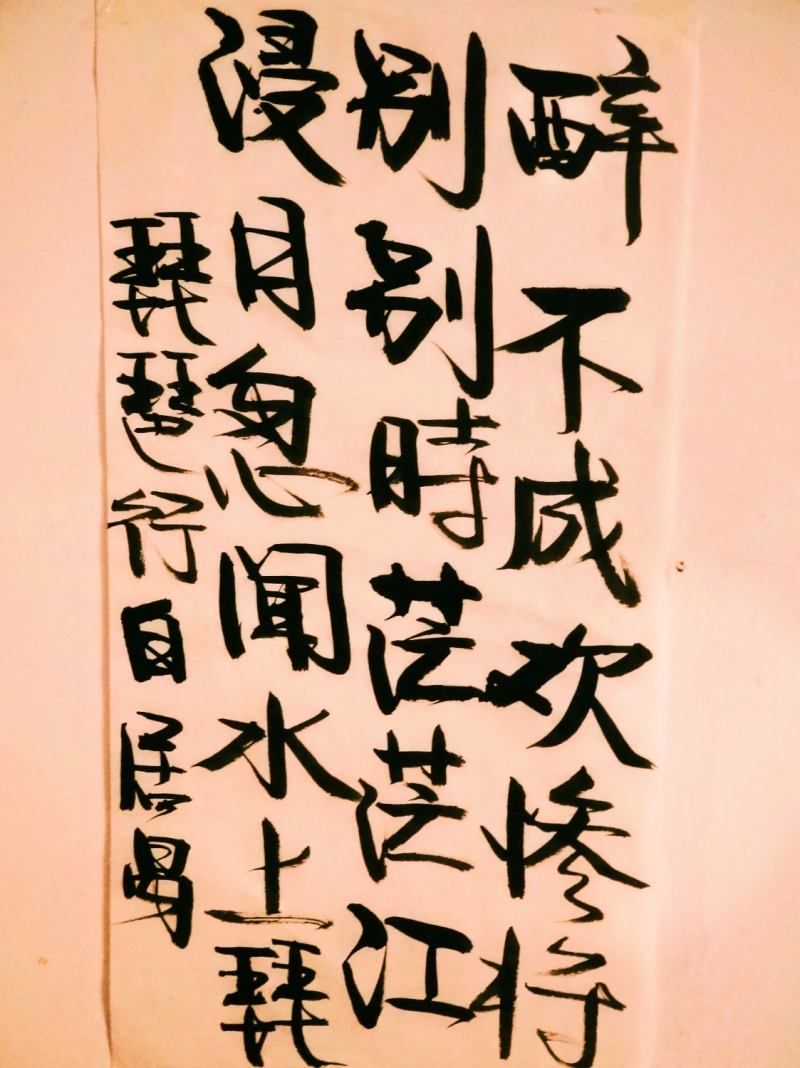 醉不成欢惨将
别别時茫茫江
浸月忽闻水上琵
琵琶行白居易